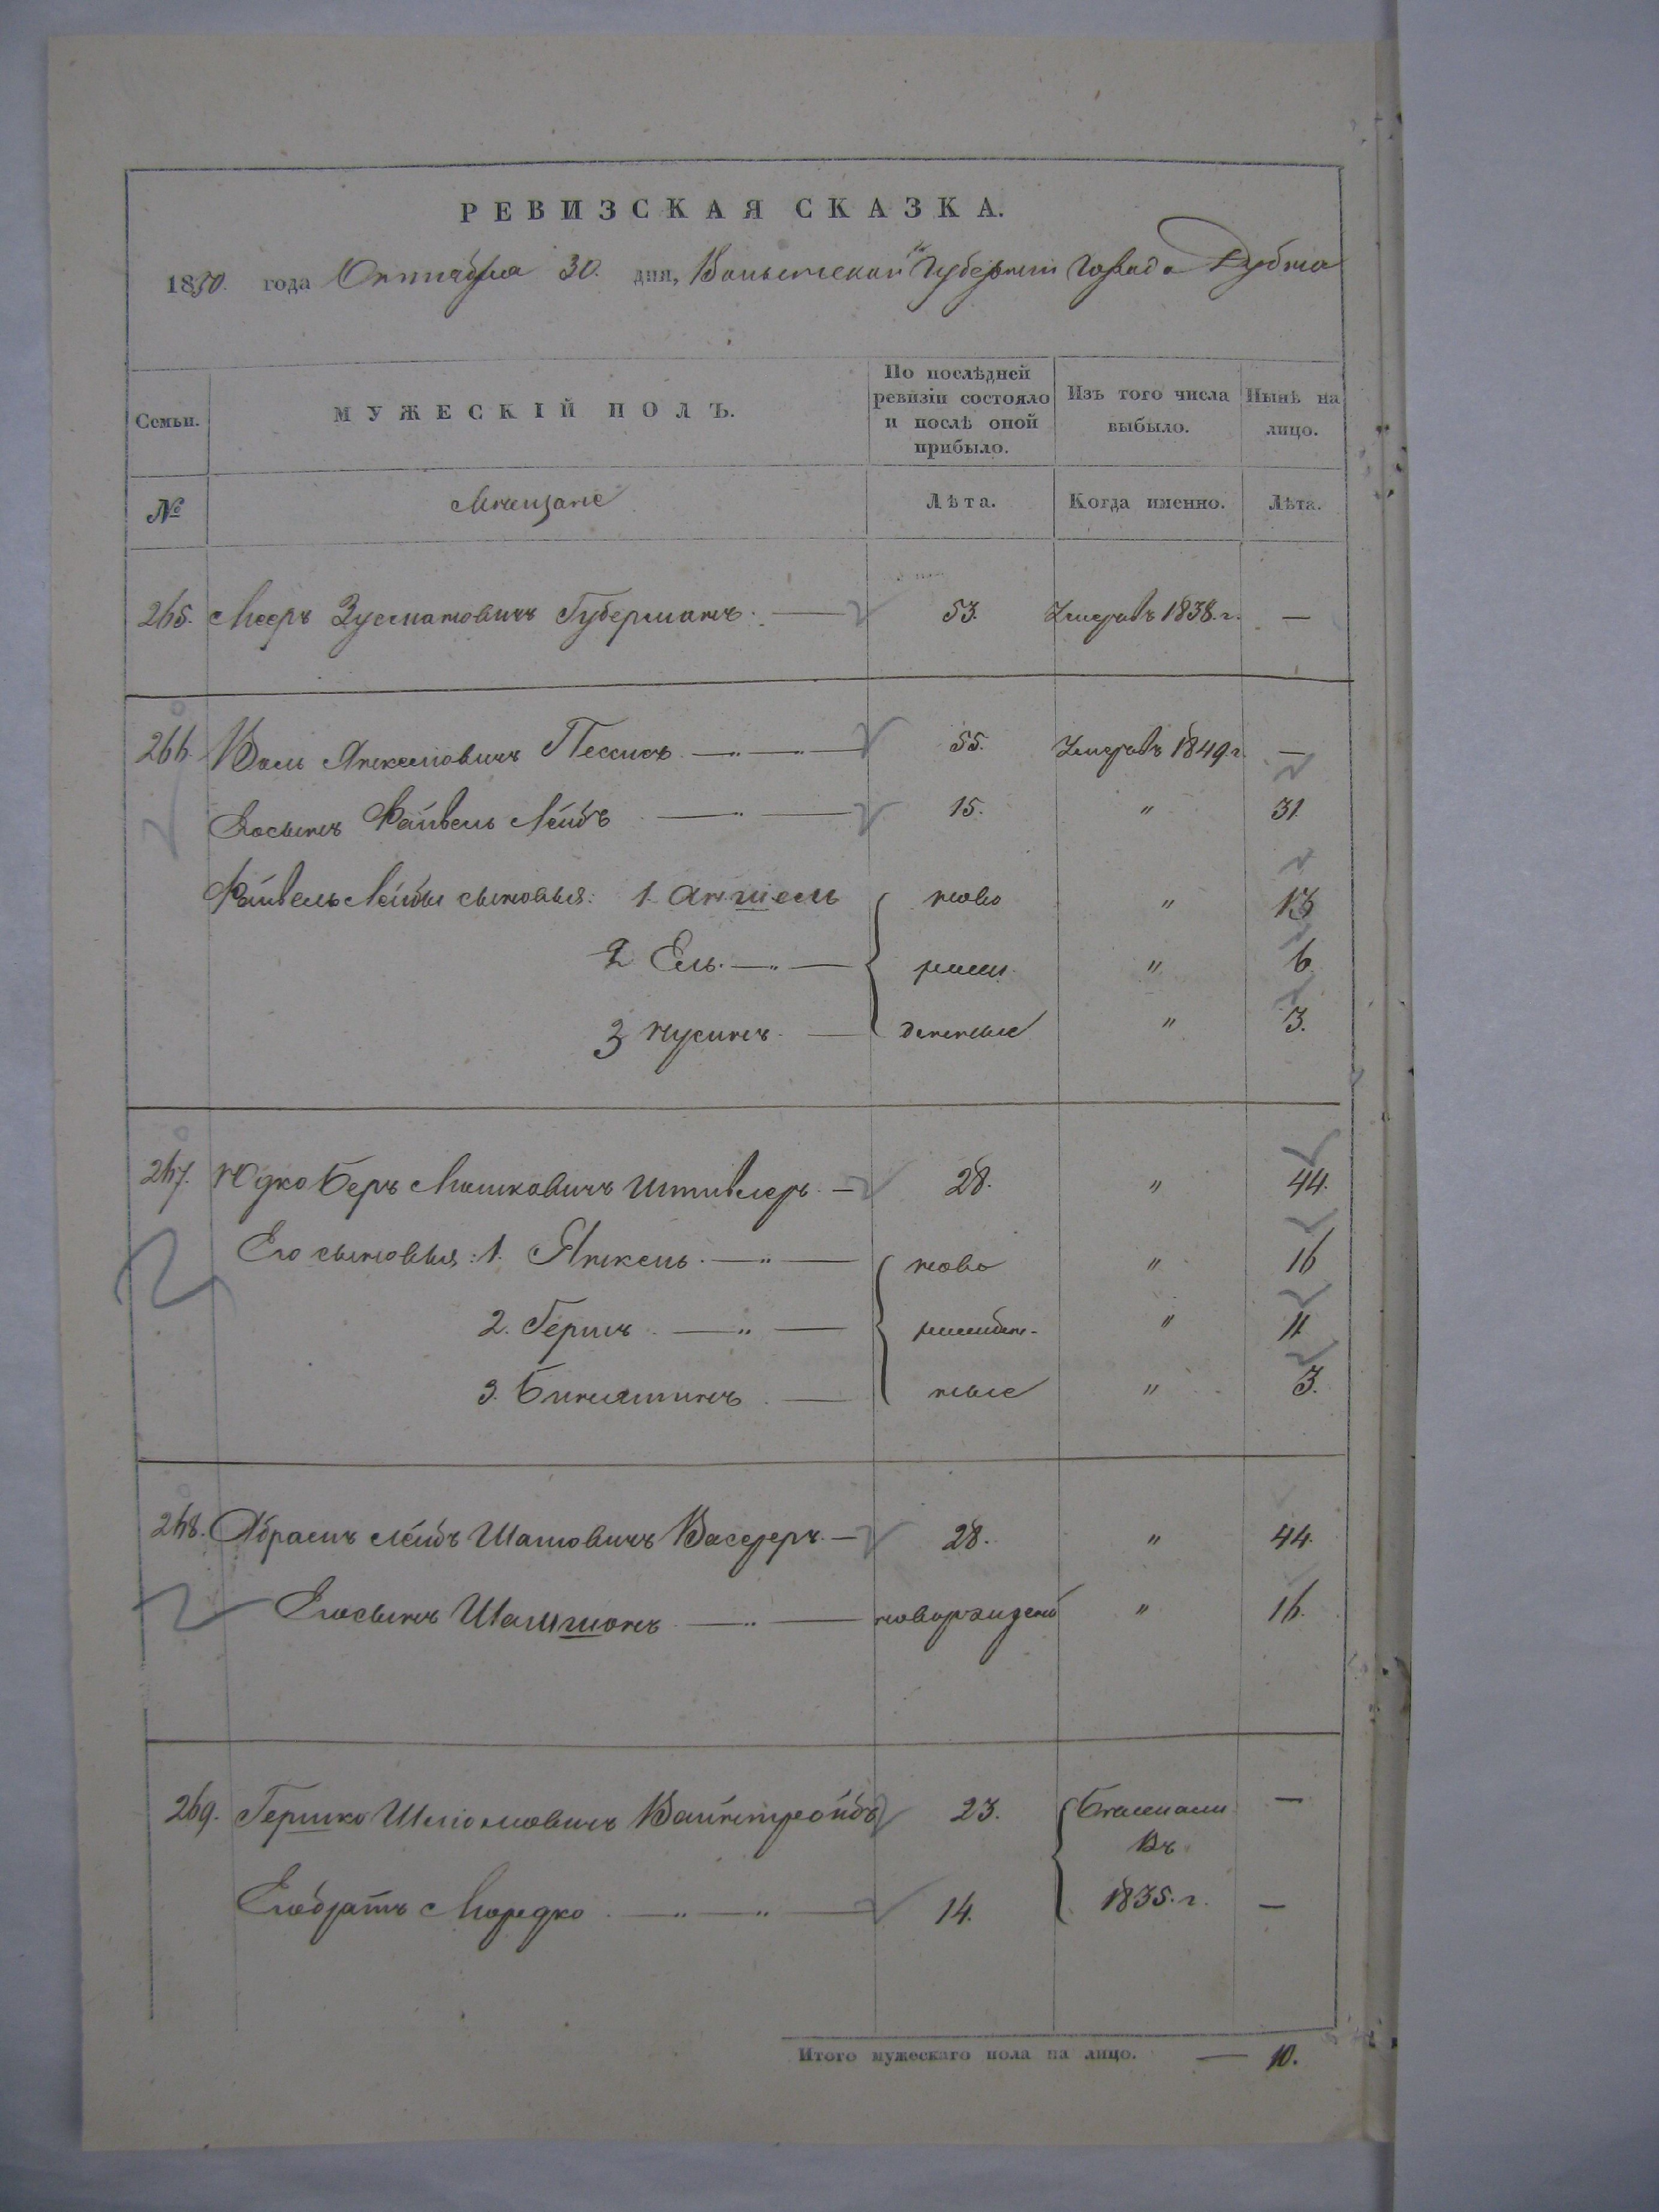 РЕВИЗСКАЯ СКАЗКА.
1850. года Октября 30. дня, Волынской Губернiи Города Дубна
Семьи. МУЖЕСКІЙ ПОЛЪ. По послѣдней ревизіи состояло и послѣ оной прибыло. Изъ того числа выбыло. Нынѣ на лицо.
№ Мещане Лѣта. Когда именно. Лѣта.
265. Мееръ Зусмановичъ Губерманъ. — 53. Умеръ въ 1838. г. —
266. Волъ Янкелювичъ Пессисъ — " — " — 55. Умеръ въ 1849 г. —
Его сынъ Файвель Лейбъ — " — 15. " 31.
Файвель Лейбы сыновья: 1. Аншель ново " 13
2 Ель. — " — рожи " 6.
3 Нусинъ. — денные " 3.
267. Юдко Беръ Мошковичъ Штивлеръ. — 28. " 44.
Его сыновья: 1. Янкель. — " — ново " 16
2. Гершъ. — " — рожден- " 11
3. Биняминъ. — ные " 3.
268. Абрамъ Лейбъ Шамовичъ Вассеръ. — 28. " 44.
Его сынъ Шамшонъ — " — новорожденъ " 16.
269. Гершко Шлiомовичъ Вайнтройбъ 23. Бежали —
Въ
Его братъ Мордко. — " — " — 14. 1835. г. —
Итого мужескаго пола на лицо. — 10.